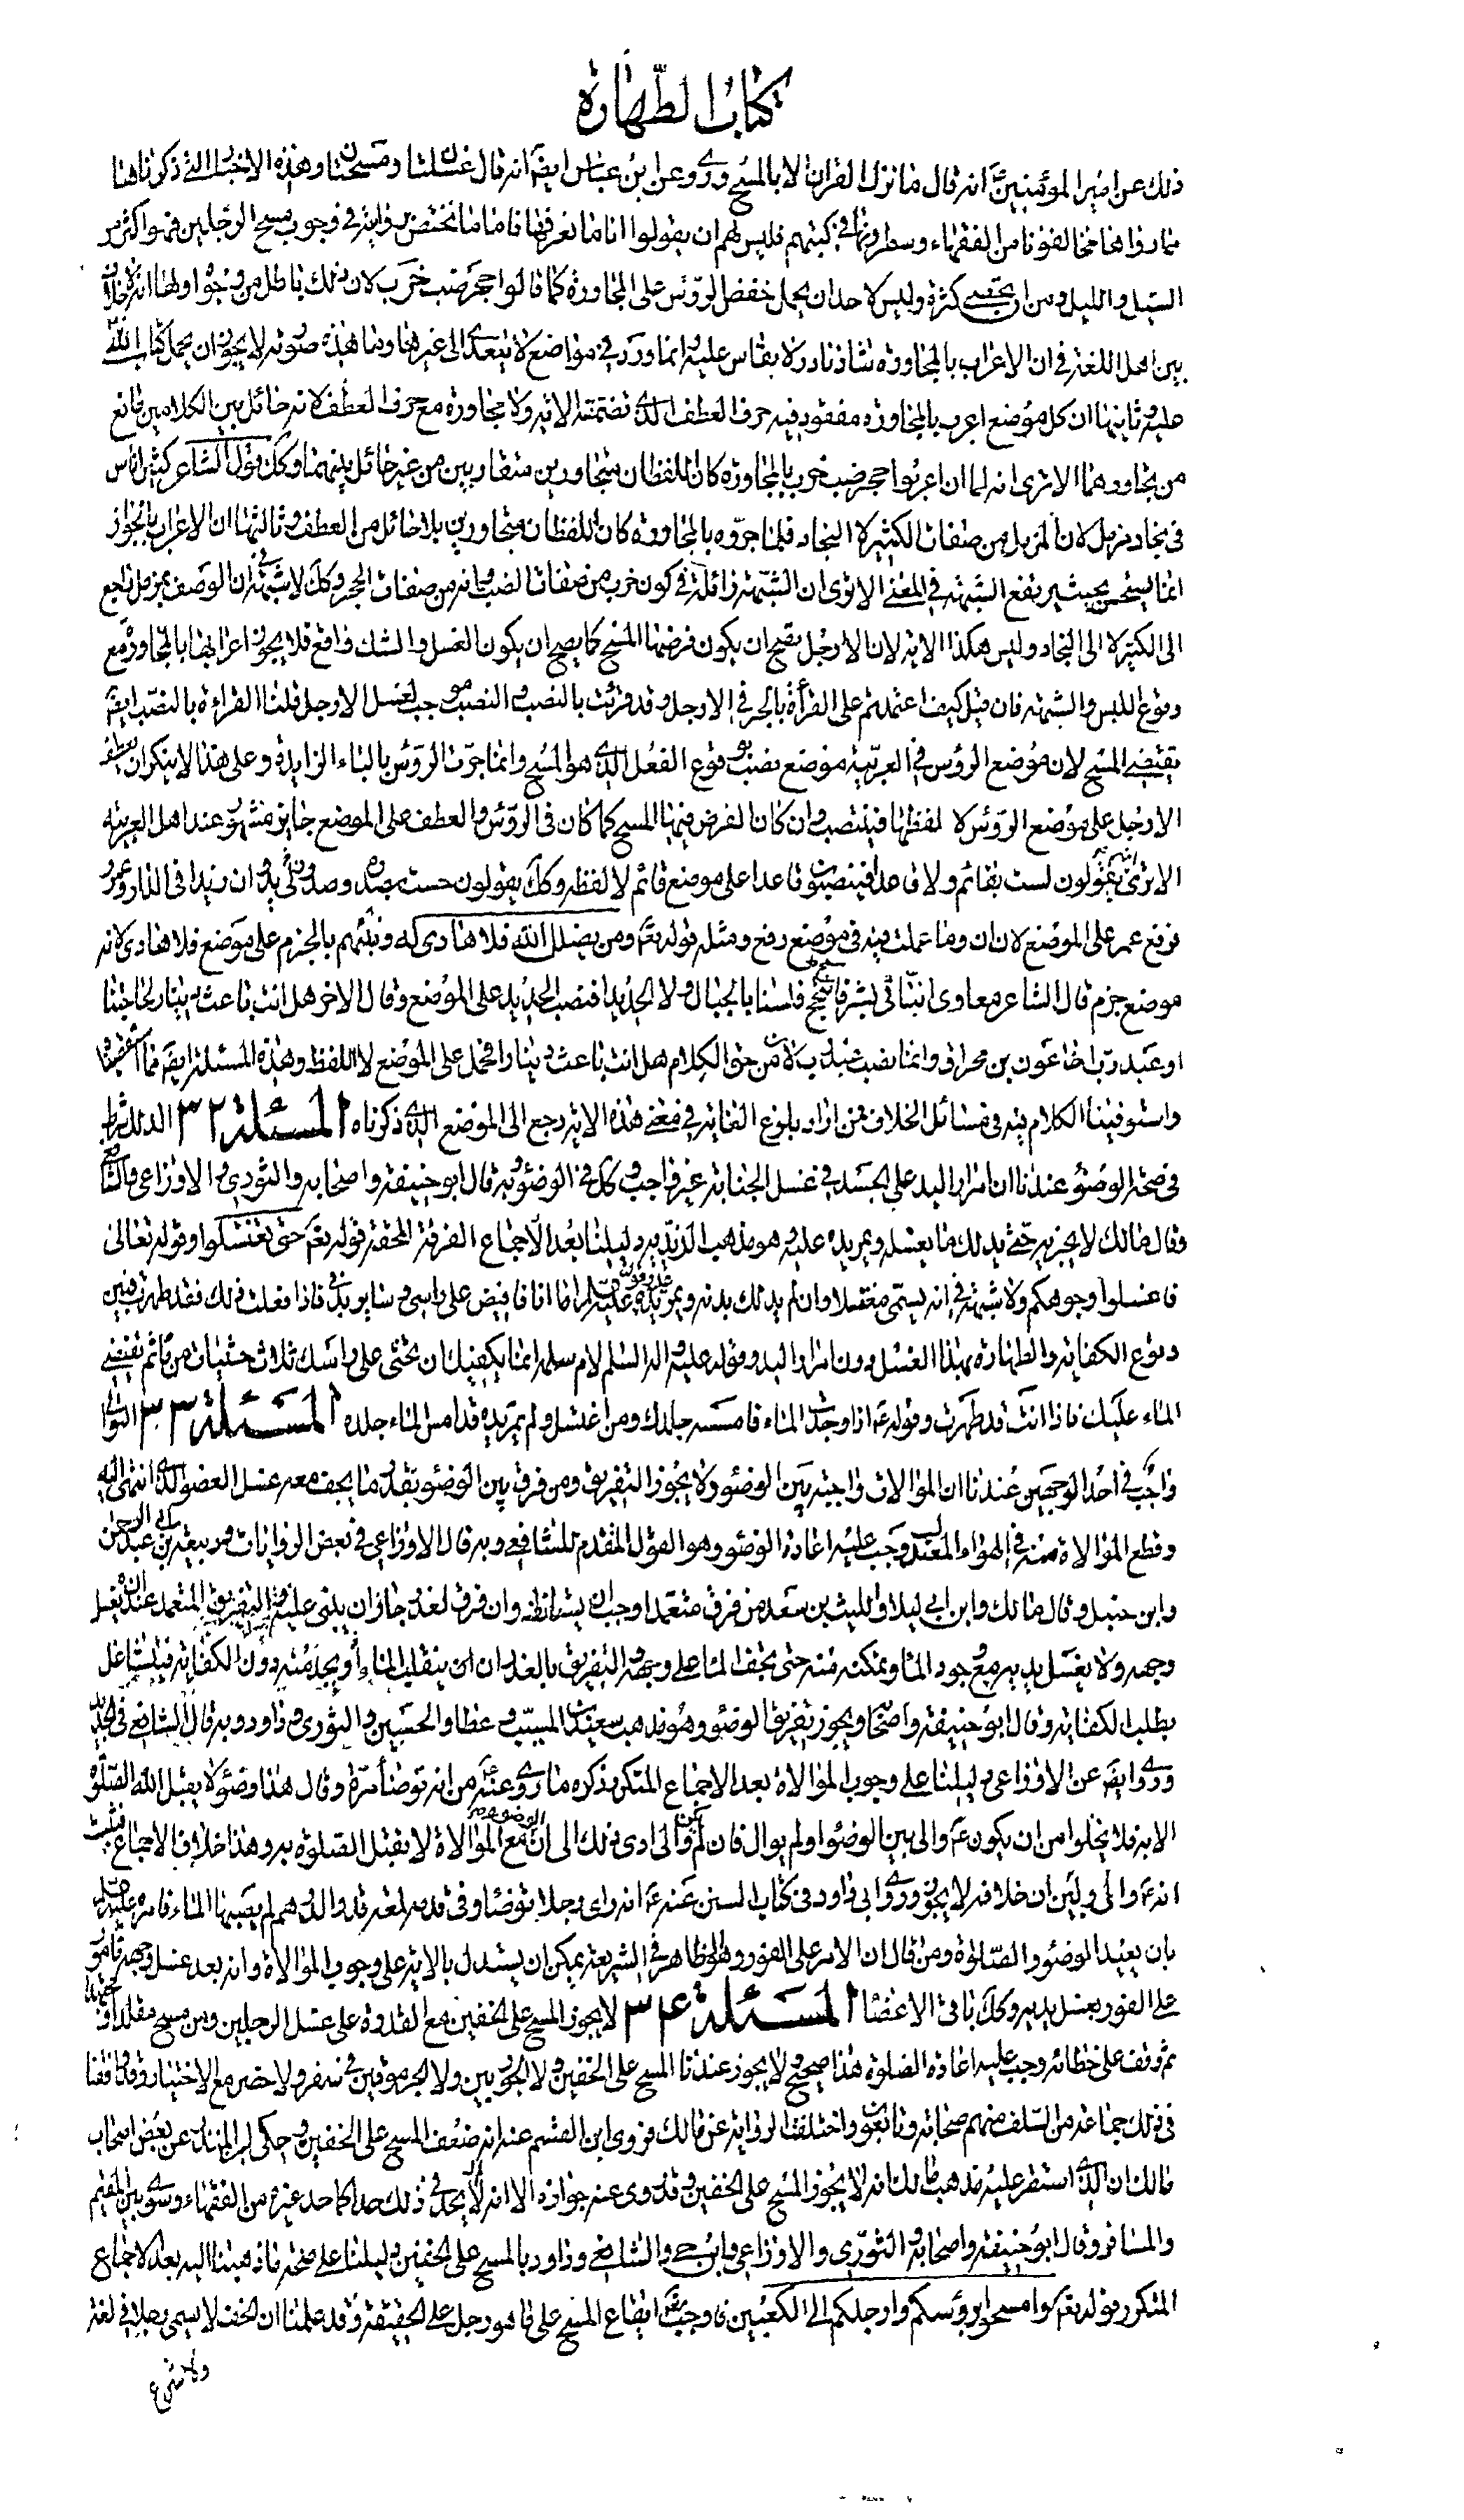 كتاب الطهارة
ذلك عن امير المؤمنين ع انه قال ما نزل القران الا بالمسح وروى عن ابن عباس ايضا انه قال غسلتان ومسحتان وهذه الاخبار التي ذكرناها
مما رواها مخالفونا من الفقهاء وسطروها في كتبهم فليس لهم ان يقولوا انا ما نعرفها فاما ما نختص بروايته في وجوب مسح الرجلين فهو اكثر من
السيل والليل ومن ان يحصى كثرة وليس لاحد ان يحمل خفض الرؤس على المجاورة كما قالوا حجر ضب خرب لان ذلك باطل من وجوه اولها انه لا خلاف
بين اهل اللغة في ان الاعراب بالمجاورة شاذ نادر لا يقاس عليه وانما ورد في مواضع لا يتعدى الى غيرها وما هذه صورته لا يجوز ان يحمل كتاب الله
عليه وثانيها ان كل موضع اعرب بالمجاورة مفقود فيه حرف العطف الذي تضمنته الاية ولا مجاورة مع حرف العطف لانه حائل بين الكلامين مانع
من تجاورهما الا ترى انه لما ان اعربوا حجر ضب خرب بالمجاورة كان اللفظان متجاورين متقاربين من غير حائل بينهما وكك قول الشاعر كبير اناس
في بجاد مزمل لان المزمل من صفات الكبير لا البجاد فلما جروه بالمجاورة كان اللفظان متجاورين بلا حائل من العطف وثالثها ان الاعراب بالجوار
انما يستحسن بحيث يرتفع الشبهة في المعنى الا ترى ان الشبهة زائلة في كون خرب من صفات الضب وانه من صفات الحجر وكك لا شبهة في ان الوصف بمزمل راجع
الى الكبير لا الى البجاد وليس هكذا الاية لان الارجل يصح ان يكون فرضها المسح كما يصح ان يكون الغسل والشك واقع فلا يجوز اعرابها بالمجاورة مع
وقوع اللبس والشبهة فان قيل كيف اعتمدتم على القرأة بالجر في الارجل وقد قرئت بالنصب والنصب موجب لغسل الارجل قلنا القراءة بالنصب ايضا
يقتضي المسح لان موضع الرؤس في العربية موضع نصب بوقوع الفعل الذي هو المسح وانما جرت الرؤس بالباء الزايدة وعلى هذا لا ينكر ان يعطف
الارجل على موضع الرؤس لا لفظها فينتصب وان كان الفرض فيها المسح كما كان في الرؤس والعطف على الموضع جايز مشهور عند اهل العربية
الا ترى انهم يقولون لست بقائم ولا قاعدا فينصبون قاعدا على موضع قائم لا لفظه وكك يقولون خشنت بصدره وصدر زيد وان زيدا في الدار وعمرو
فرفع عمر على الموضع لان ان وما عملت فيه في موضع رفع ومثله قوله تعم ومن يضلل الله فلا هادي له ويذرهم بالجزم على موضع فلا هادي لانه
موضع جزم قال الشاعر معاوى اننا بشر فاسجح فلسنا بالجبال ولا الحديدا فنصب الحديد على الموضع وقال الاخر هل انت باعث دينار لحاجتنا
او عبد رب اخا عون بن مخراق وانما نصب عبد رب لان من حق الكلام هل انت باعث دينارا فحمل على الموضع لا اللفظ وهذه المسئلة ايضا مما استقصينا
واستوفينا الكلام فيه في مسائل الخلاف فمن اراد بلوغ الغاية في معنى هذه الاية رجع الى الموضع الذي ذكرناه المسئلة ٣٢ الدلك شرط
في صحة الوضوء عندنا ان امرار اليد على الجسد في غسل الجنابة غير واجب وكك في الوضوء وبه قال ابو حنيفة واصحابه والثوري والاوزاعي والشافعي
وقال مالك لا يجزيه حتى يدلك ما يغسله ويمر يده عليه وهو مذهب الزيدية دليلنا بعد الاجماع الفرقة المحقة قوله تعم حتى تغتسلوا وقوله تعالى
فاغسلوا وجوهكم ولا شبهة في انه يسمى مغتسلا وان لم يدلك بدنه ويمر يده عليه اما انا فافيض على راسي وساير بدني فاذا فعلت ذلك فقد طهرت فبين
وقوع الكفاية والطهارة بهذا الغسل دون امرار اليد وقوله عليه واله السلم لام سلمة انما يكفيك ان تحثى على راسك ثلاث حثيات من ماء ثم تفيضي
الماء عليك فاذا انت قد طهرت وقوله ع اذا وجدت الماء فامسسه جلدك ومن اغتسل ولم يمر يده قد امس الماء جلده المسئلة ٣٣ التوالي
واجب في احد الوجهين عندنا ان الموالاة واجبة بين الوضوء ولا يجوز التفريق ومن فرق بين الوضوء بقدر ما يجف معه غسل العضو الذي انتهى اليه
وقطع الموالاة منه في الهواء المعتدل وجب عليه اعادة الوضوء وهو القول المتقدم للشافعي وبه قال الاوزاعي في بعض الروايات وربيعة بن ابي عبد الرحمن
وابن حنبل وقال مالك وابن ابي ليلا والليث بن سعد من فرق متعمدا وجب ان يستانف وان فرق لعذر جاز ان يبنى عليه والتفريق المتعمد عنده ان يغسل
وجهه ولا يغسل يديه مع وجود الماء وتمكنه منه حتى يجف الماء على وجهه والتفريق بالعذر ان ينقلب الماء او يجد منه دون الكفاية فيتشاغل
بطلب الكفاية وقال ابو حنيفة واصحابه يجوز تفريق الوضوء وهو مذهب سعيد بن المسيب وعطا والحسين والثوري وداود وبه قال الشافعي في الجديد
وروى ايضا عن الاوزاعي دليلنا على وجوب الموالاة بعد الاجماع المتكرر ذكره ما روى عنه ع من انه توضأ مرة وقال هذا وضوء لا يقبل الله الصلوة
الا به فلا يخلوا من ان يكون ع والى بين الوضوء او لم يوال فان لم يكن والى ادى ذلك الى ان الوضوء مع الموالاة لا يقبل الصلوة به وهذا خلاف الاجماع فثبت
انه ع والى وبين ان خلافه لا يجوز وروى ابي داود في كتاب السنن عنه ع انه راى رجلا يتوضا وفي قدمه لمعة قدر الدرهم لم يصبها الماء فامره عليه السلم
بان يعيد الوضوء والصلوة ومن قال ان الامر على الفور وهو الظاهر في الشريعة يمكن ان يستدل بالاية على وجوب الموالاة وانه بعد غسل وجهه مامور
على الفور بغسل يديه وكك باقي الاعضاء المسئلة ٣٤ لا يجوز المسح على الخفين مع القدرة على غسل الرجلين ومن مسح مقلدا او مجتهدا
ثم وقف على خطائه وجب عليه اعادة الصلوة هذا صحيح ولا يجوز عندنا المسح على الخفين ولا الجوربين ولا الجرموقين في سفر ولا حضر مع الاختيار وقد وافقنا
في ذلك جماعة من السلف منهم صحابة وتابعون واختلفت الرواية عن مالك فروى ابن القسم عنه انه ضعف المسح على الخفين وحكى ابن المنذر عن بعض اصحاب
مالك ان الذي استقر عليه مذهب مالك انه لا يجوز المسح على الخفين وقد روى عنه جوازه الا انه لا يحد في ذلك حدا كما حد غيره من الفقهاء وسوى بين المقيم
والمسافر وقال ابو حنيفة واصحابه والثوري والاوزاعي وابن حي والشافعي وداود بالمسح على الخفين دليلنا على صحة ما ذهبنا اليه بعد الاجماع
المتكرر قوله تعم وامسحوا برؤسكم وارجلكم الى الكعبين فاوجب تعم ايقاع المسح على ما هو رجل على الحقيقة وقد علمنا ان الخف لا يسمى رجلا في لغة
ولا شرع